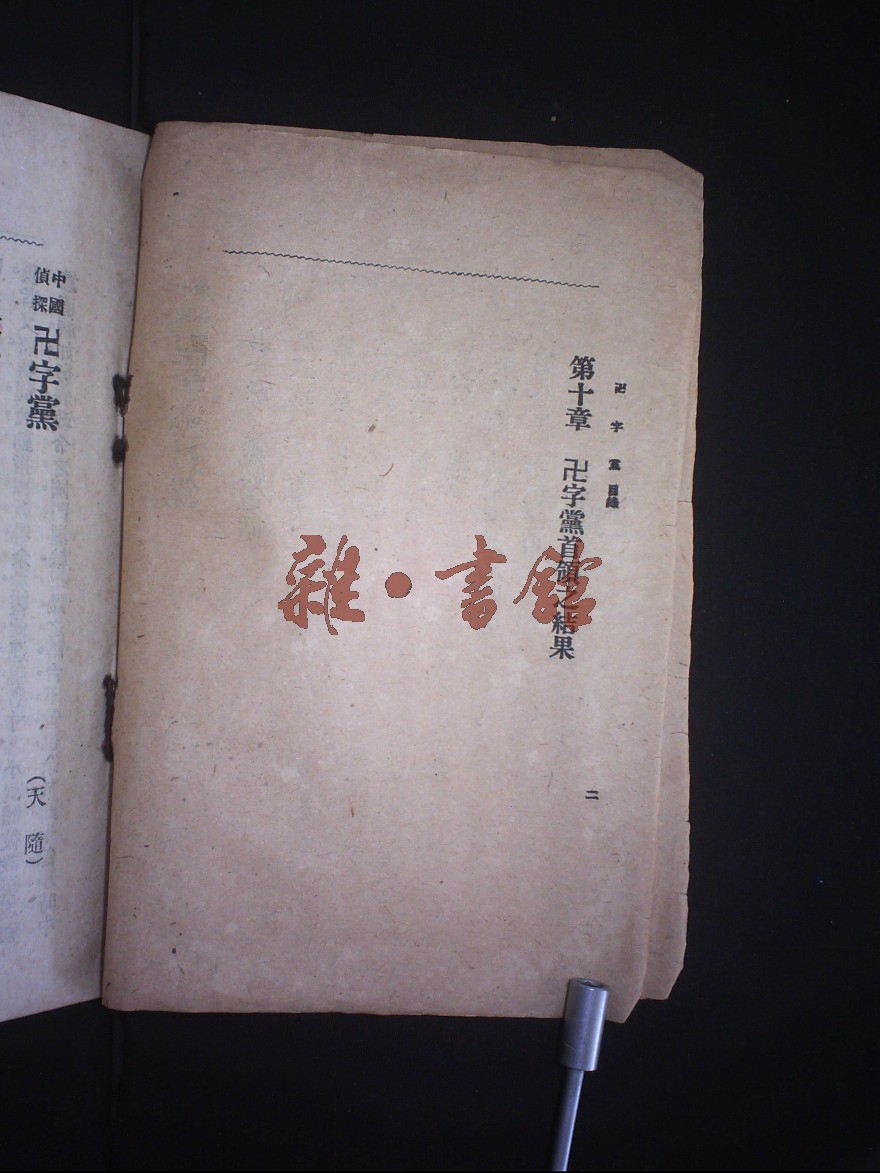 卍字黨 目錄
第十章 卍字黨首領之結果
二
中國
偵探
卍字黨
(天隨)
雜·書館